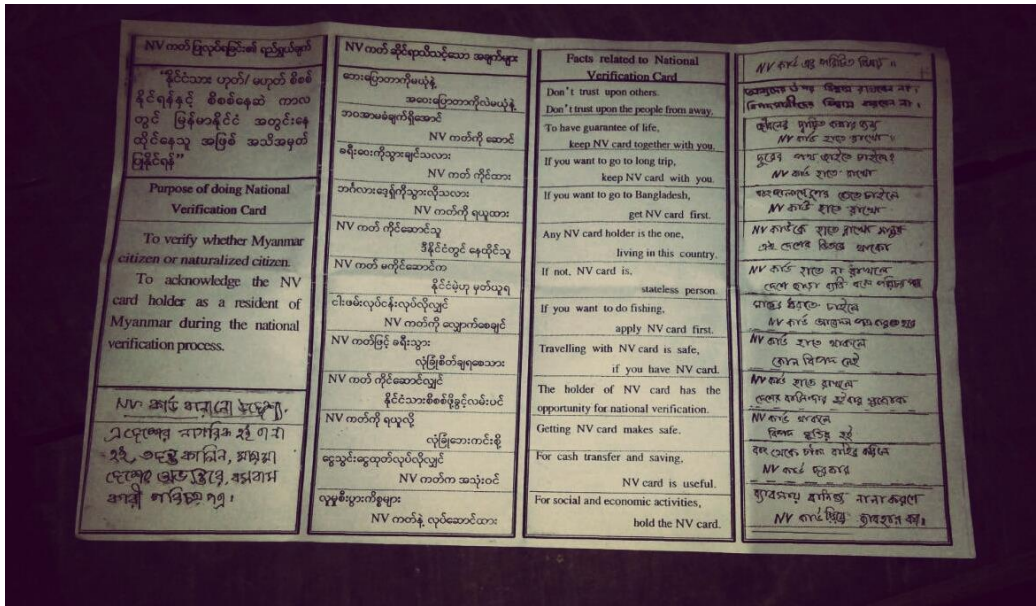 NV ကတ် ပြုလုပ်ရခြင်း၏ ရည်ရွယ်ချက်
“နိုင်ငံသား ဟုတ်/ မဟုတ် စိစစ်
နိုင်ရန်နှင့် စိစစ်နေဆဲ ကာလ
တွင် မြန်မာနိုင်ငံ အတွင်းနေ
ထိုင်နေသူ အဖြစ် အသိအမှတ်
ပြုနိုင်ရန်”
Purpose of doing National
Verification Card
To verify whether Myanmar
citizen or naturalized citizen.
To acknowledge the NV
card holder as a resident of
Myanmar during the national
verification process.
NV কার্ড বানানো উদ্দেশ্য
এ দেশের নাগরিক হই বা না
হই,
NV ကတ် ဆိုင်ရာသိသင့်သော အချက်များ
ဘေးပြောတာကိုမယုံနဲ့
အဝေးပြောတာကိုလဲမယုံနဲ့
ဘဝအာမခံချက်ရှိအောင်
NV ကတ်ကို ဆောင်
ခရီးဝေးကိုသွားချင်သလား
NV ကတ်ကို ကိုင်ထား
ဘင်္ဂလားဒေ့ရှ်ကိုသွားလိုသလား
NV ကတ်ကို ရယူထား
NV ကတ် ကိုင်ဆောင်သူ
ဒီနိုင်ငံတွင် နေထိုင်သူ
NV ကတ် မကိုင်ဆောင်က
နိုင်ငံမဲ့ဟု မှတ်ယူရ
ငါးဖမ်းလုပ်ငန်းလုပ်လိုလျှင်
NV ကတ်ကို လျှောက်စေချင်
NV ကတ်ဖြင့် ခရီးသွား
လုံခြုံစိတ်ချရစေသား
NV ကတ် ကိုင်ဆောင်လျှင်
နိုင်ငံသားစိစစ်ဖို့ခွင့်လမ်းပင်
NV ကတ်ကို ရယူလို့
လုံခြုံဘေးကင်းစို့
ငွေသွင်းငွေထုတ်လုပ်လိုလျှင်
NV ကတ်က အသုံးဝင်
လူမှုစီးပွားကိစ္စများ
NV ကတ်နဲ့ လုပ်ဆောင်ထား
Facts related to National
Verification Card
Don't trust upon others.
Don't trust upon the people from away.
To have guarantee of life,
keep NV card together with you.
If you want to go to long trip,
keep NV card with you.
If you want to go to Bangladesh,
get NV card first.
Any NV card holder is the one,
living in this country.
If not, NV card is,
stateless person.
If you want to do fishing,
apply NV card first.
Travelling with NV card is safe,
if you have NV card.
The holder of NV card has the
opportunity for national verification.
Getting NV card makes safe.
For cash transfer and saving,
NV card is useful.
For social and economic activities,
hold the NV card.
NV কার্ড এর
NV কার্ড হাতে রাখো
দূরের পথ যাইতে চাইলে
NV কার্ড হাতে রাখো
NV কার্ড হাতে রাখো
NV কার্ডকে হাতে রাখো
এই দেশের ভিতরে থাকো
NV কার্ড হাতে না রাখলে
মাছ ধরতে চাইলে
NV কার্ড
NV কার্ড হাতে থাকলে
কোন বিপদ নেই
NV কার্ড হাতে রাখলে
NV কার্ড থাকলে
NV কার্ড দরকার
NV কার্ড